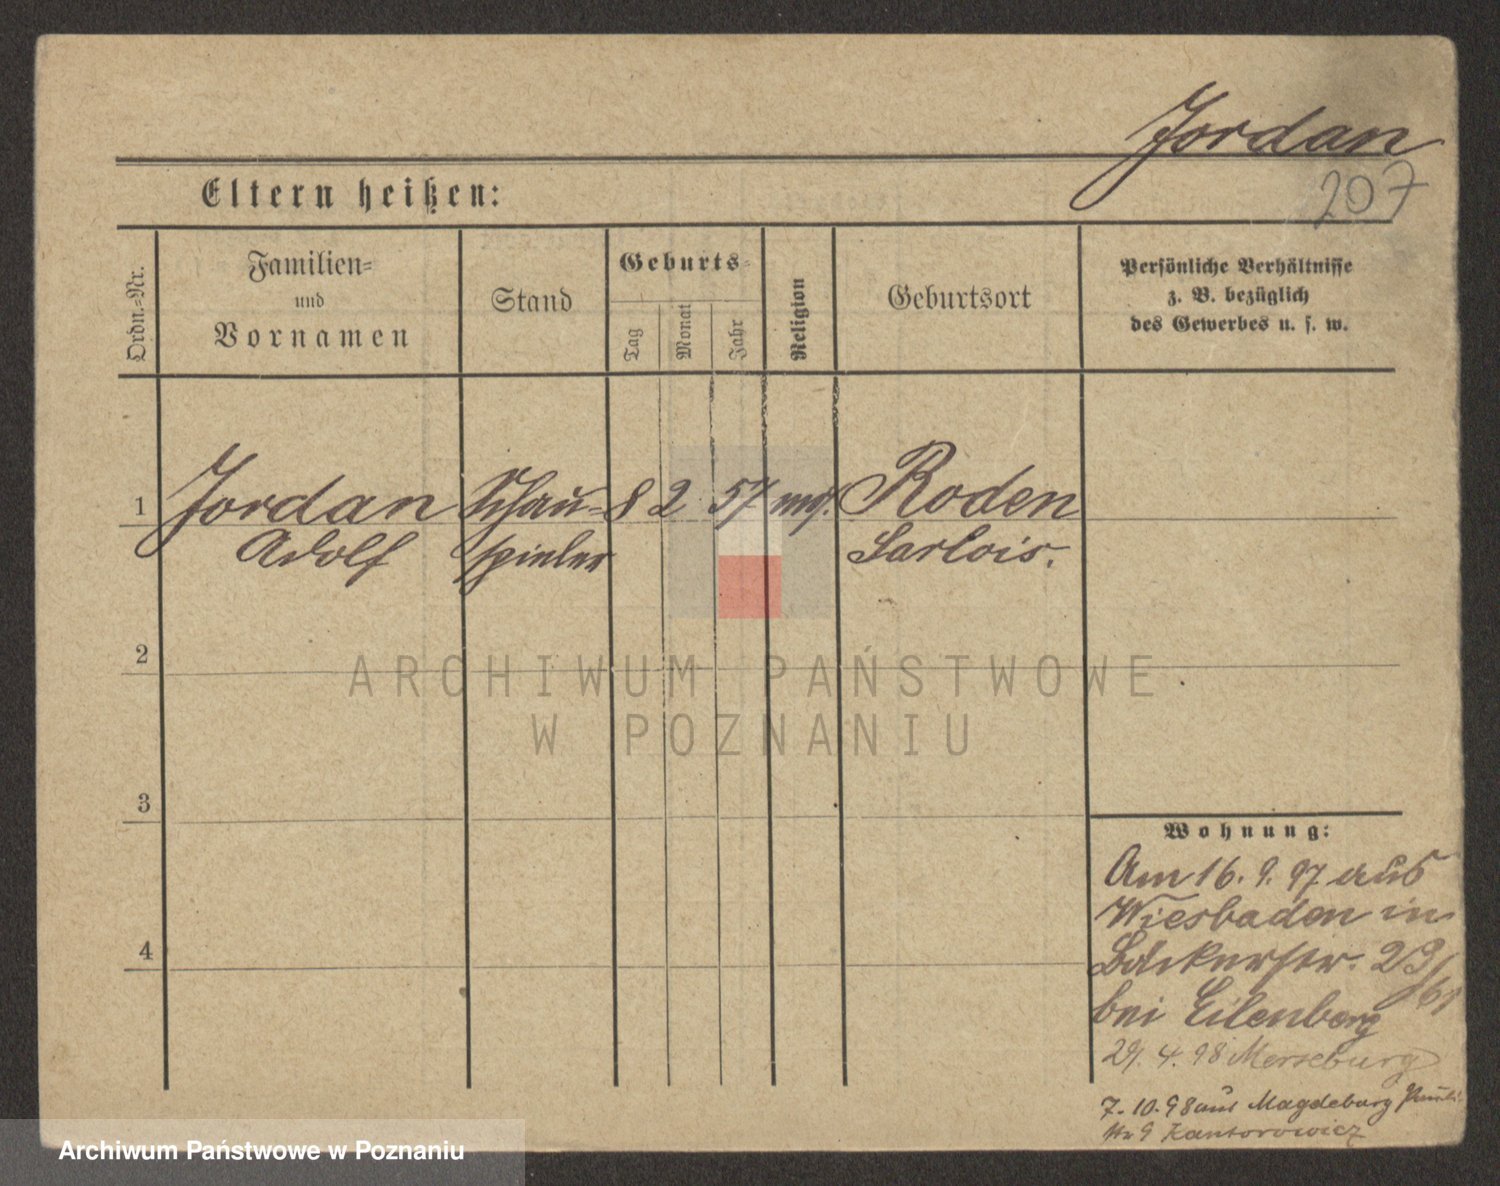 Jordan
207
Eltern heißen:
Ordn.=Nr.
Familien=
und
Vornamen
Stand
Geburts=
Tag
Monat
Jahr
Religion
Geburtsort
Persönliche Verhältnisse
z. B. bezüglich
des Gewerbes u. s. w.
1 Jordan Schau= 8 2 57 Roden
Adolf spieler Sarlois.
2
3
4
ARCHIWUM PAŃSTWOWE
W POZNANIU
Wohnung:
Am 16. 9. 97 aus
Wiesbaden in
Bäckerstr. 23/
bei Eilenberg
29. 4. 98 Merseburg
7. 10. 98 aus Magdeburg
9 Kantorowicz
Archiwum Państwowe w Poznaniu